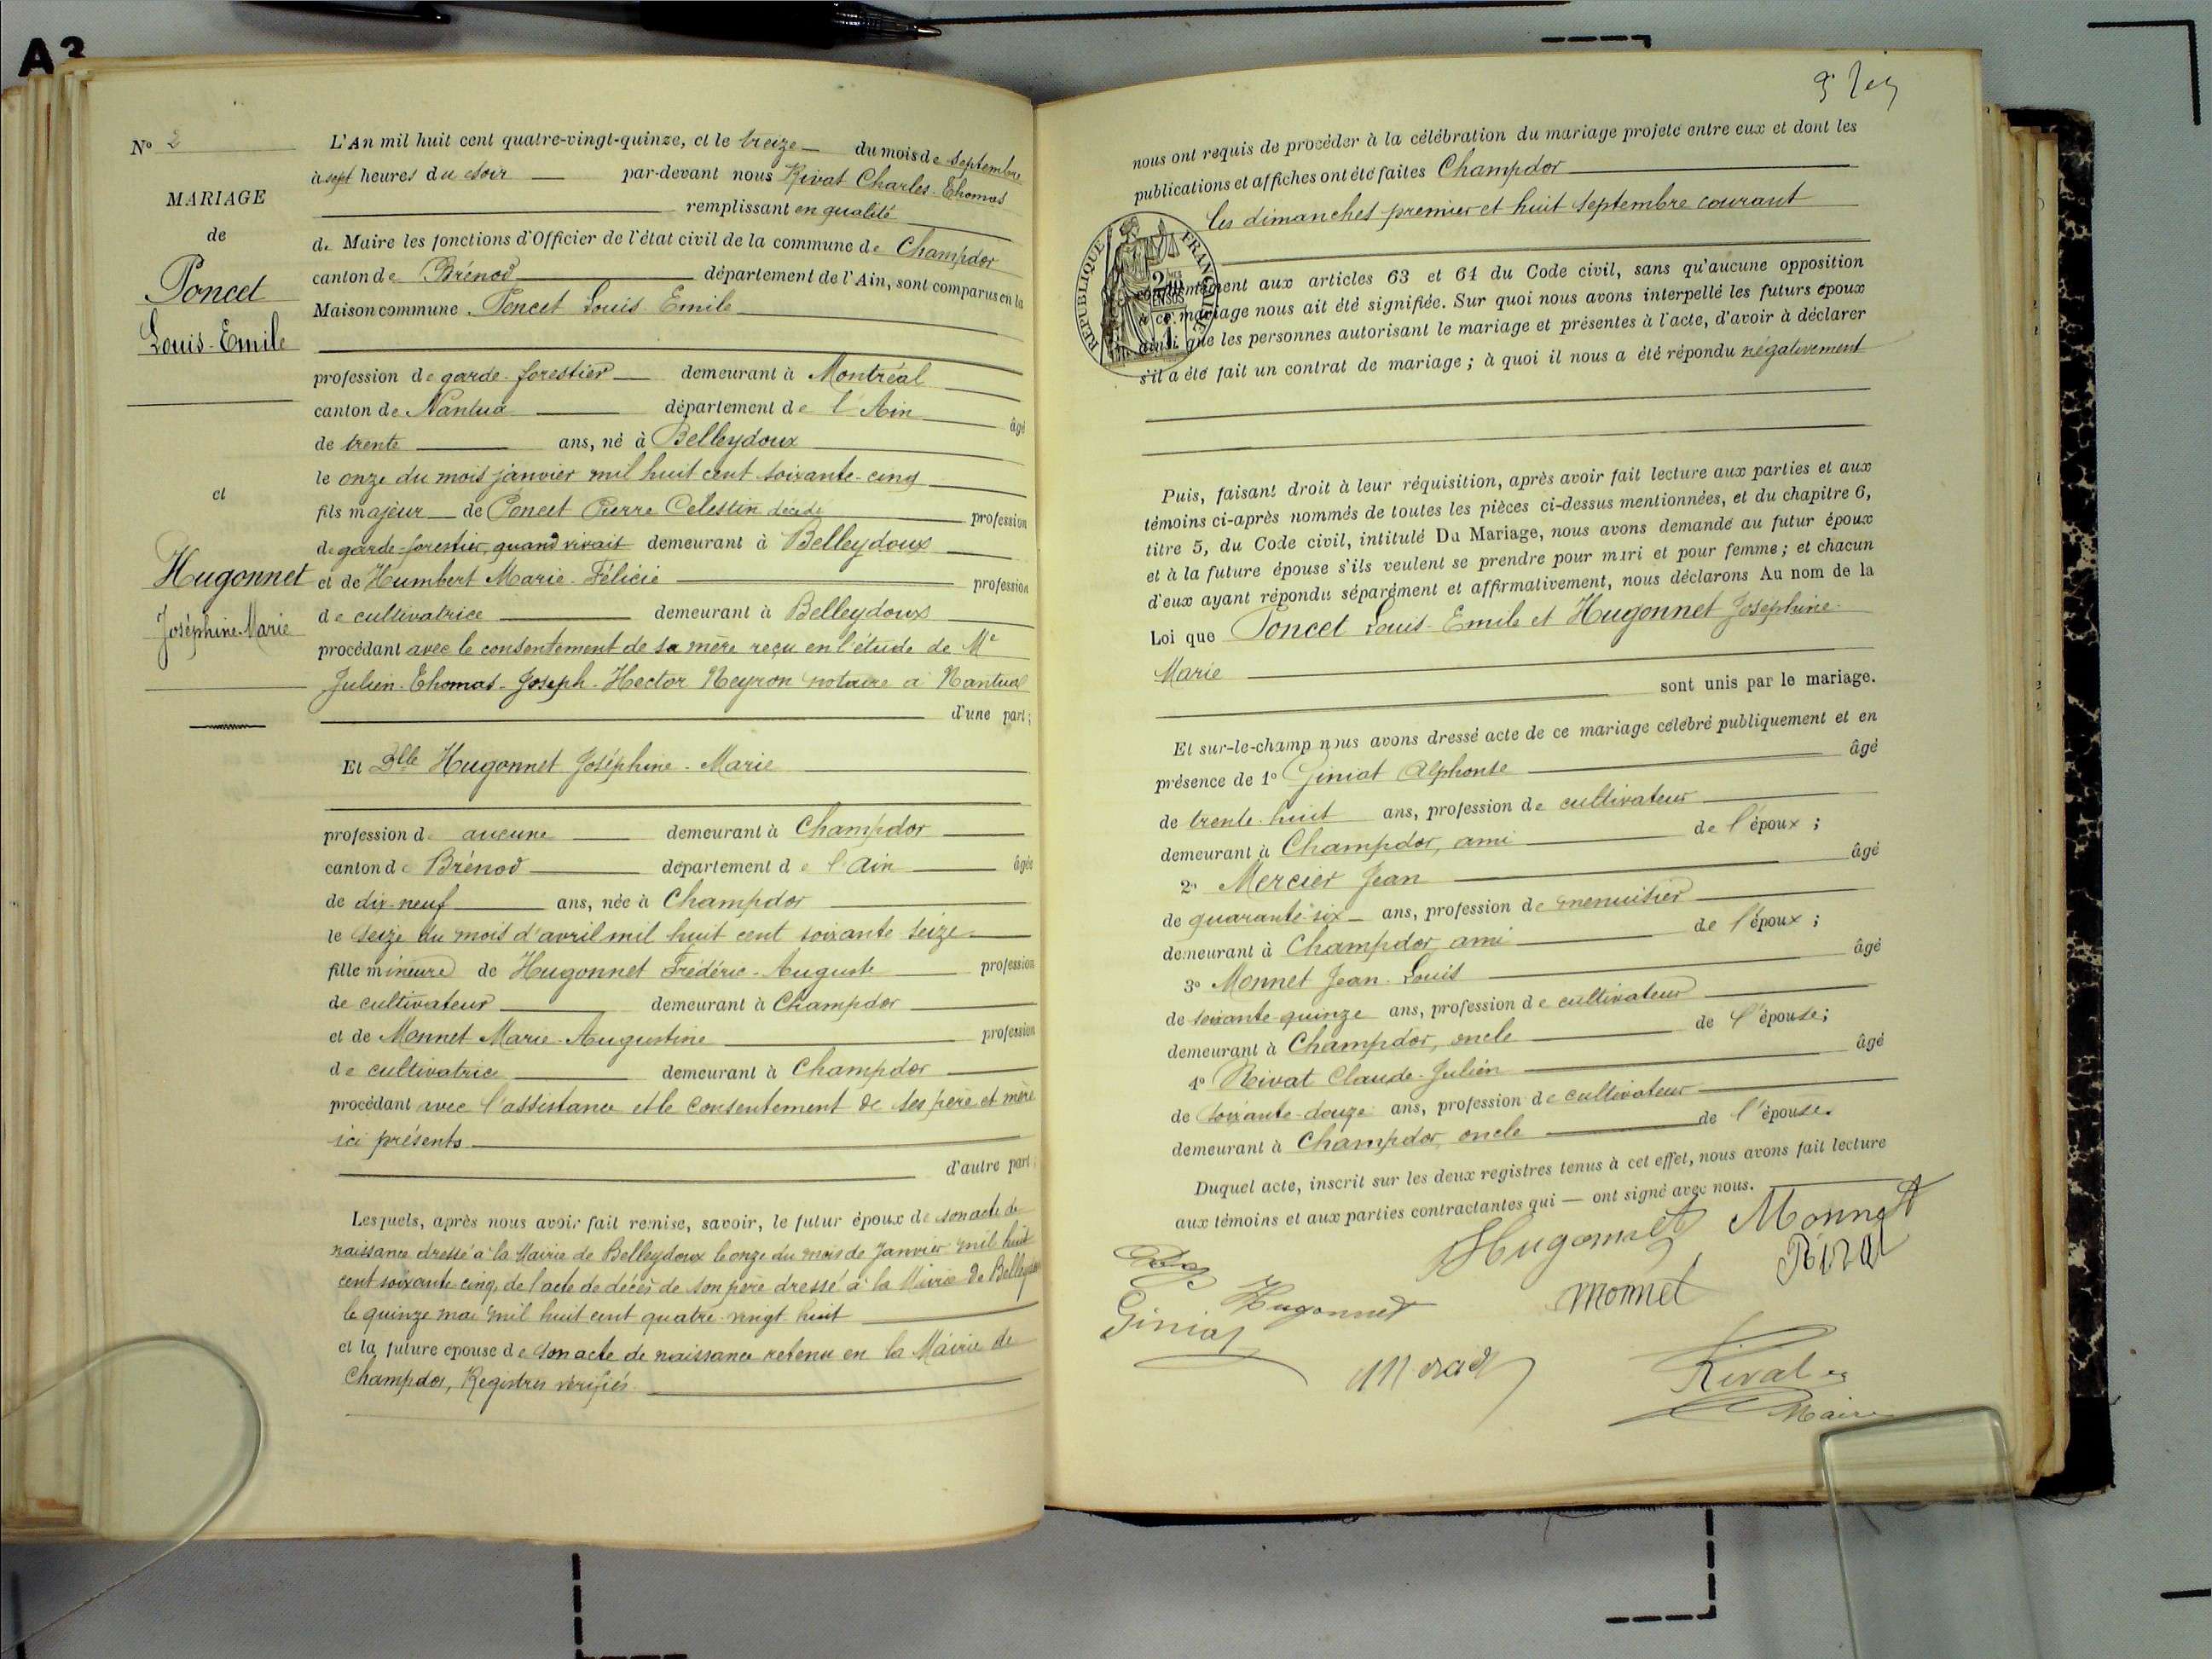 A3
N° 2
MARIAGE
de
Poncet
Louis-Emile
et
Hugonnet
Joséphine-Marie
L'An mil huit cent quatre-vingt-quinze, et le treize du mois de Septembre
à sept heures du soir par-devant nous Rivat Charles-Thomas
remplissant en qualité
de Maire les fonctions d'Officier de l'état civil de la commune de Champdor
canton de Brénod département de l'Ain, sont comparus en la
Maison commune. Poncet Louis-Emile
profession de garde-forestier demeurant à Montréal
canton de Nantua département de l'Ain âgé
de trente ans, né à Belleydoux
le onze du mois janvier mil huit cent soixante-cinq
fils majeur de Poncet Pierre Celestin décédé profession
de garde-forestier, quand vivait demeurant à Belleydoux
et de Humbert Marie-Félicie profession
de cultivatrice demeurant à Belleydoux
procédant avec le consentement de sa mère reçu en l'étude de Me
Julien-Thomas-Joseph-Hector Neyron notaire à Nantua
d'une part;
Et Dlle Hugonnet Joséphine-Marie
profession d aucune demeurant à Champdor
canton de Brénod département de l'Ain âgée
de dix-neuf ans, née à Champdor
le seize du mois d'avril mil huit cent soixante seize
fille mineure de Hugonnet Frédéric-Auguste profession
de cultivateur demeurant à Champdor
et de Monnet Marie-Augustine profession
de cultivatrice demeurant à Champdor
procédant avec l'assistance et le consentement de ses père et mère
ici présents
d'autre part;
Lesquels, après nous avoir fait remise, savoir, le futur époux de son acte de
naissance dressé à la Mairie de Belleydoux le onze du mois de Janvier mil huit
cent soixante-cinq, de l'acte de décès de son père dressé à la Mairie de Belleydoux
le quinze mai mil huit cent quatre-vingt-huit
et la future épouse de son acte de naissance retenu en la Mairie de
Champdor, Registres vérifiés
nous ont requis de procéder à la célébration du mariage projeté entre eux et dont les
publications et affiches ont été faites Champdor
les dimanches premier et huit Septembre courant
REPUBLIQUE FRANÇAISE
conformément aux articles 63 et 64 du Code civil, sans qu'aucune opposition
à ce mariage nous ait été signifiée. Sur quoi nous avons interpellé les futurs époux
ainsi que les personnes autorisant le mariage et présentes à l'acte, d'avoir à déclarer
s'il a été fait un contrat de mariage; à quoi il nous a été répondu négativement
Puis, faisant droit à leur réquisition, après avoir fait lecture aux parties et aux
témoins ci-après nommés de toutes les pièces ci-dessus mentionnées, et du chapitre 6,
titre 5, du Code civil, intitulé Du Mariage, nous avons demandé au futur époux
et à la future épouse s'ils veulent se prendre pour mari et pour femme; et chacun
d'eux ayant répondu séparément et affirmativement, nous déclarons Au nom de la
Loi que Poncet Louis-Emile et Hugonnet Joséphine-
Marie
sont unis par le mariage.
Et sur-le-champ nous avons dressé acte de ce mariage célébré publiquement et en
présence de 1° Giniat Alphonse âgé
de trente-huit ans, profession de cultivateur
demeurant à Champdor, ami de l'époux;
2° Mercier Jean âgé
de quarante-six ans, profession de menuisier
demeurant à Champdor, ami de l'époux;
3° Monnet Jean-Louis âgé
de soixante-quinze ans, profession de cultivateur
demeurant à Champdor, oncle de l'épouse;
4° Rivat Claude-Julien âgé
de soixante-douze ans, profession de cultivateur
demeurant à Champdor, oncle de l'épouse.
Duquel acte, inscrit sur les deux registres tenus à cet effet, nous avons fait lecture
aux témoins et aux parties contractantes qui — ont signé avec nous.
Hugonnet Monnet
Rivat
Hugonnet monnet
Giniat
Rivat
Maire